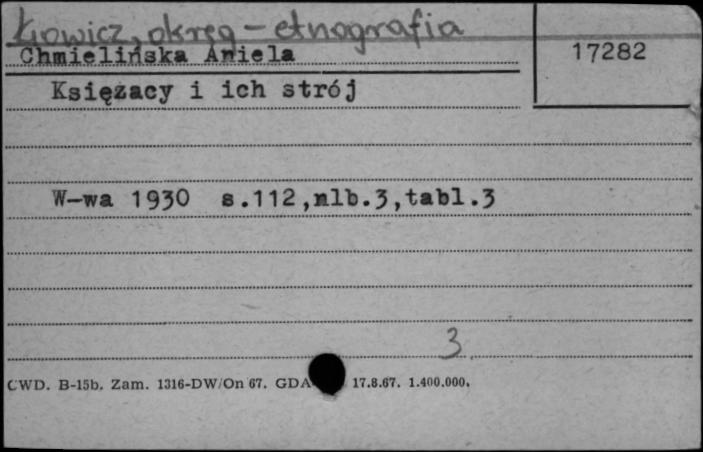 Łowicz, okręg - etnografia
Chmielińska Aniela
17282
Księżacy i ich strój
W-wa 1930 s.112,nlb.3,tabl.3
3
CWD. B-15b. Zam. 1316-DW/On 67. GDA 17.8.67. 1.400.000.